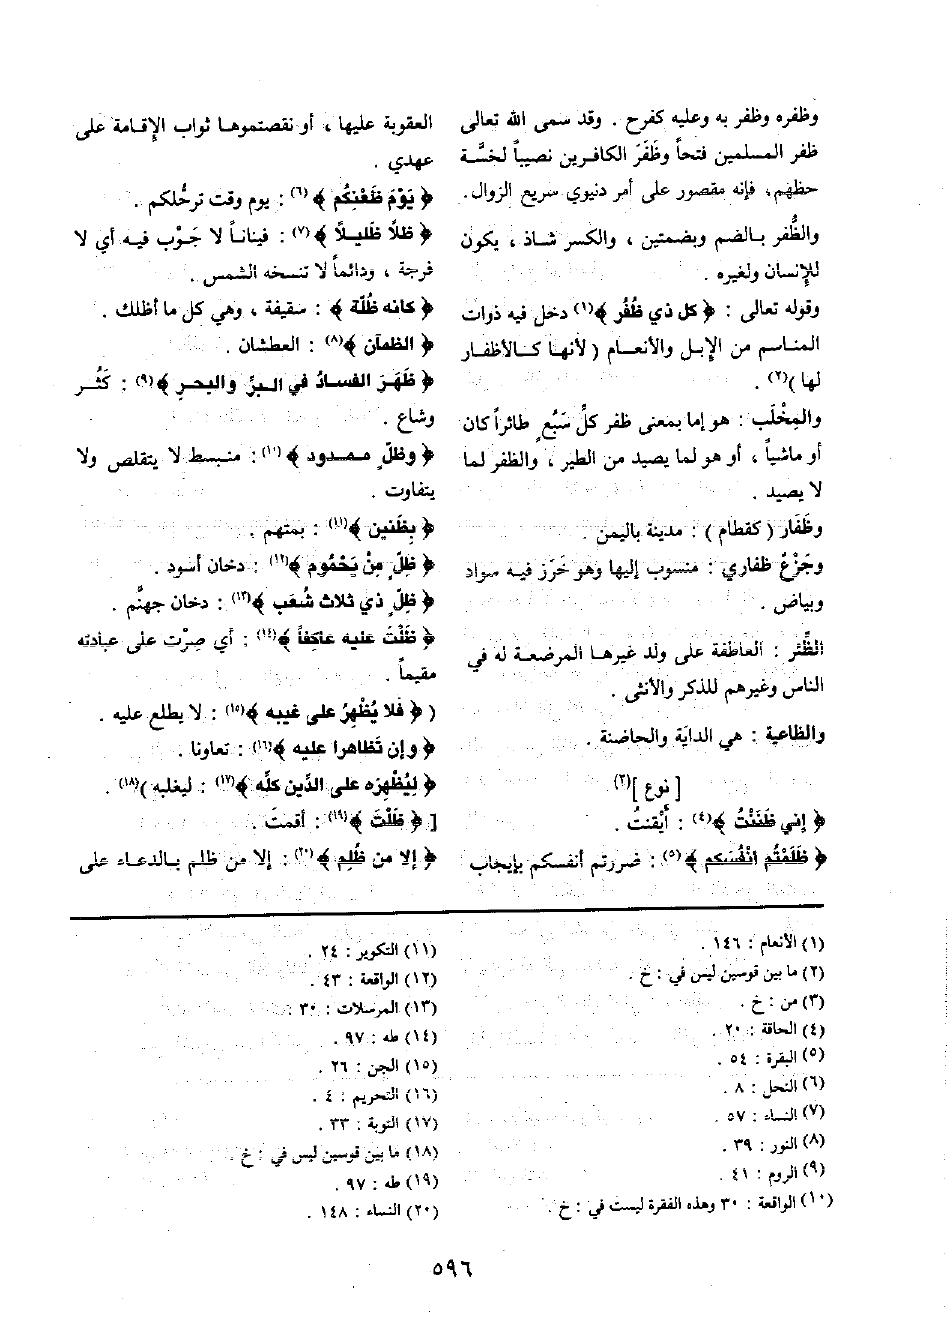 وظفره وظفر به وعليه كفرح . وقد سمى الله تعالى
ظفر المسلمين فتحاً وظَفَرَ الكافرين نصيباً لخسَّة
حظهم، فإنه مقصور على أمر دنيوي سريع الزوال.
والظُّفر بالضم وبضمتين ، والكسر شاذ ، يكون
للإنسان ولغيره .
وقوله تعالى : ﴿ كل ذي ظُفُر ﴾(١) دخل فيه ذوات
المناسم من الإبل والأنعام ( لأنها كالأظفار
لها )(٢) .
والمِخْلَب : هو إما بمعنى ظفر كلِّ سَبُع ٍ طائراً كان
أو ماشياً ، أو هو لما يصيد من الطير ، والظفر لما
لا يصيد .
وظَفَار ( كقطام ) : مدينة باليمن .
وجَزْعٌ ظفاري : منسوب إليها وهو خَرَز فيه سواد
وبياض .
الظِّئر : العاطفة على ولد غيرها المرضعة له في
الناس وغيرهم للذكر والأنثى .
والظاعية : هي الدايَة والحاضنة .
[ نوع ](٣)
﴿ إني ظَنَنْتُ ﴾(٤) : أيْقنتُ .
﴿ ظَلَمْتُم أنْفُسَكم ﴾(٥) : ضررتم أنفسكم بإيجاب
العقوبة عليها ، أو نقصتموها ثواب الإقامة على
عهدي .
﴿ يَوْمَ ظَعْنِكُم ﴾(٦) : يوم وقت ترحُّلكم .
﴿ ظلاًّ ظَليـلاً ﴾(٧) : فيناناً لا جَوْب فيه أي لا
فرجة ، ودائماً لا تنسخه الشمس .
﴿ كانه ظُلّة ﴾ : سقيفة ، وهي كل ما أظلك .
﴿ الظمآن ﴾(٨) : العطشان .
﴿ ظَهَرَ الفسادُ في البرِّ والبحرِ ﴾(٩) : كَثُر
وشاع .
﴿ وظلٍّ ممدود ﴾(١٠) : منبسط لا يتقلص ولا
يتفاوت .
﴿ بِظَنين ﴾(١١) : بمتهم .
﴿ ظِلّ ٍ مِنْ يَحْمُوم ﴾(١٢) : دخان أسود .
﴿ ظِلٍ ذي ثلاث شُعَب ﴾(١٣) : دخان جهنَّم .
﴿ ظَلْتَ عليه عاكِفاً ﴾(١٤) : أي صِرْت على عبادته
مقيماً .
( ﴿ فلا يُظْهِرُ على غيبه ﴾(١٥) : لا يطلع عليه .
﴿ وإن تَظاهرا عليه ﴾(١٦) : تعاونا .
﴿ لِيُظْهِرَه على الدِّين كلِّه ﴾(١٧) : ليغلبه )(١٨) .
[ ﴿ ظَلْتَ ﴾(١٩) : أقمتَ .
﴿ إلا من ظُلِم ﴾(٢٠) : إلا من ظلم بالدعاء على
(١) الأنعام : ١٤٦ .
(٢) ما بين قوسين ليس في : خ .
(٣) من : خ .
(٤) الحاقة : ٢٠ .
(٥) البقرة : ٥٤ .
(٦) النحل : ٨ .
(٧) النساء : ٥٧ .
(٨) النور : ٣٩ .
(٩) الروم : ٤١ .
(١٠) الواقعة : ٣٠ وهذه الفقرة ليست في : خ .
(١١) التكوير : ٢٤ .
(١٢) الواقعة : ٤٣ .
(١٣) المرسلات : ٣٠ .
(١٤) طه : ٩٧ .
(١٥) الجن : ٢٦ .
(١٦) التحريم : ٤ .
(١٧) التوبة : ٣٣ .
(١٨) ما بين قوسين ليس في : خ .
(١٩) طه : ٩٧ .
(٢٠) النساء : ١٤٨ .
٥٩٦